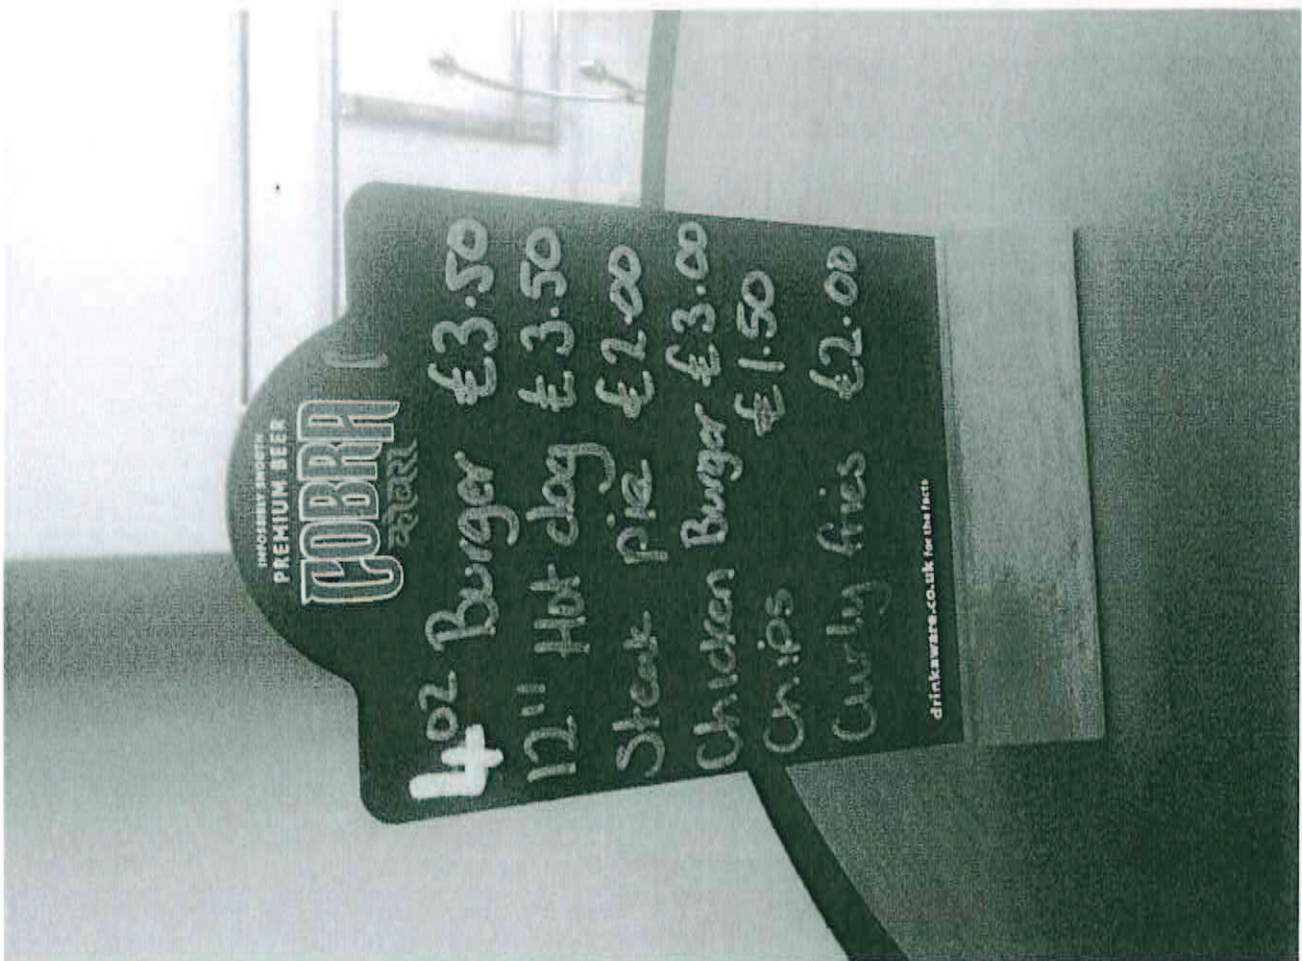 IMPOSSIBLY SMOOTH
PREMIUM BEER
COBRA
कोबरा
4oz Burger £3.50
12" Hot dog £3.50
Steak pie £2.00
Chicken Burger £3.00
Chips £1.50
Curly fries £2.00
drinkaware.co.uk for the facts